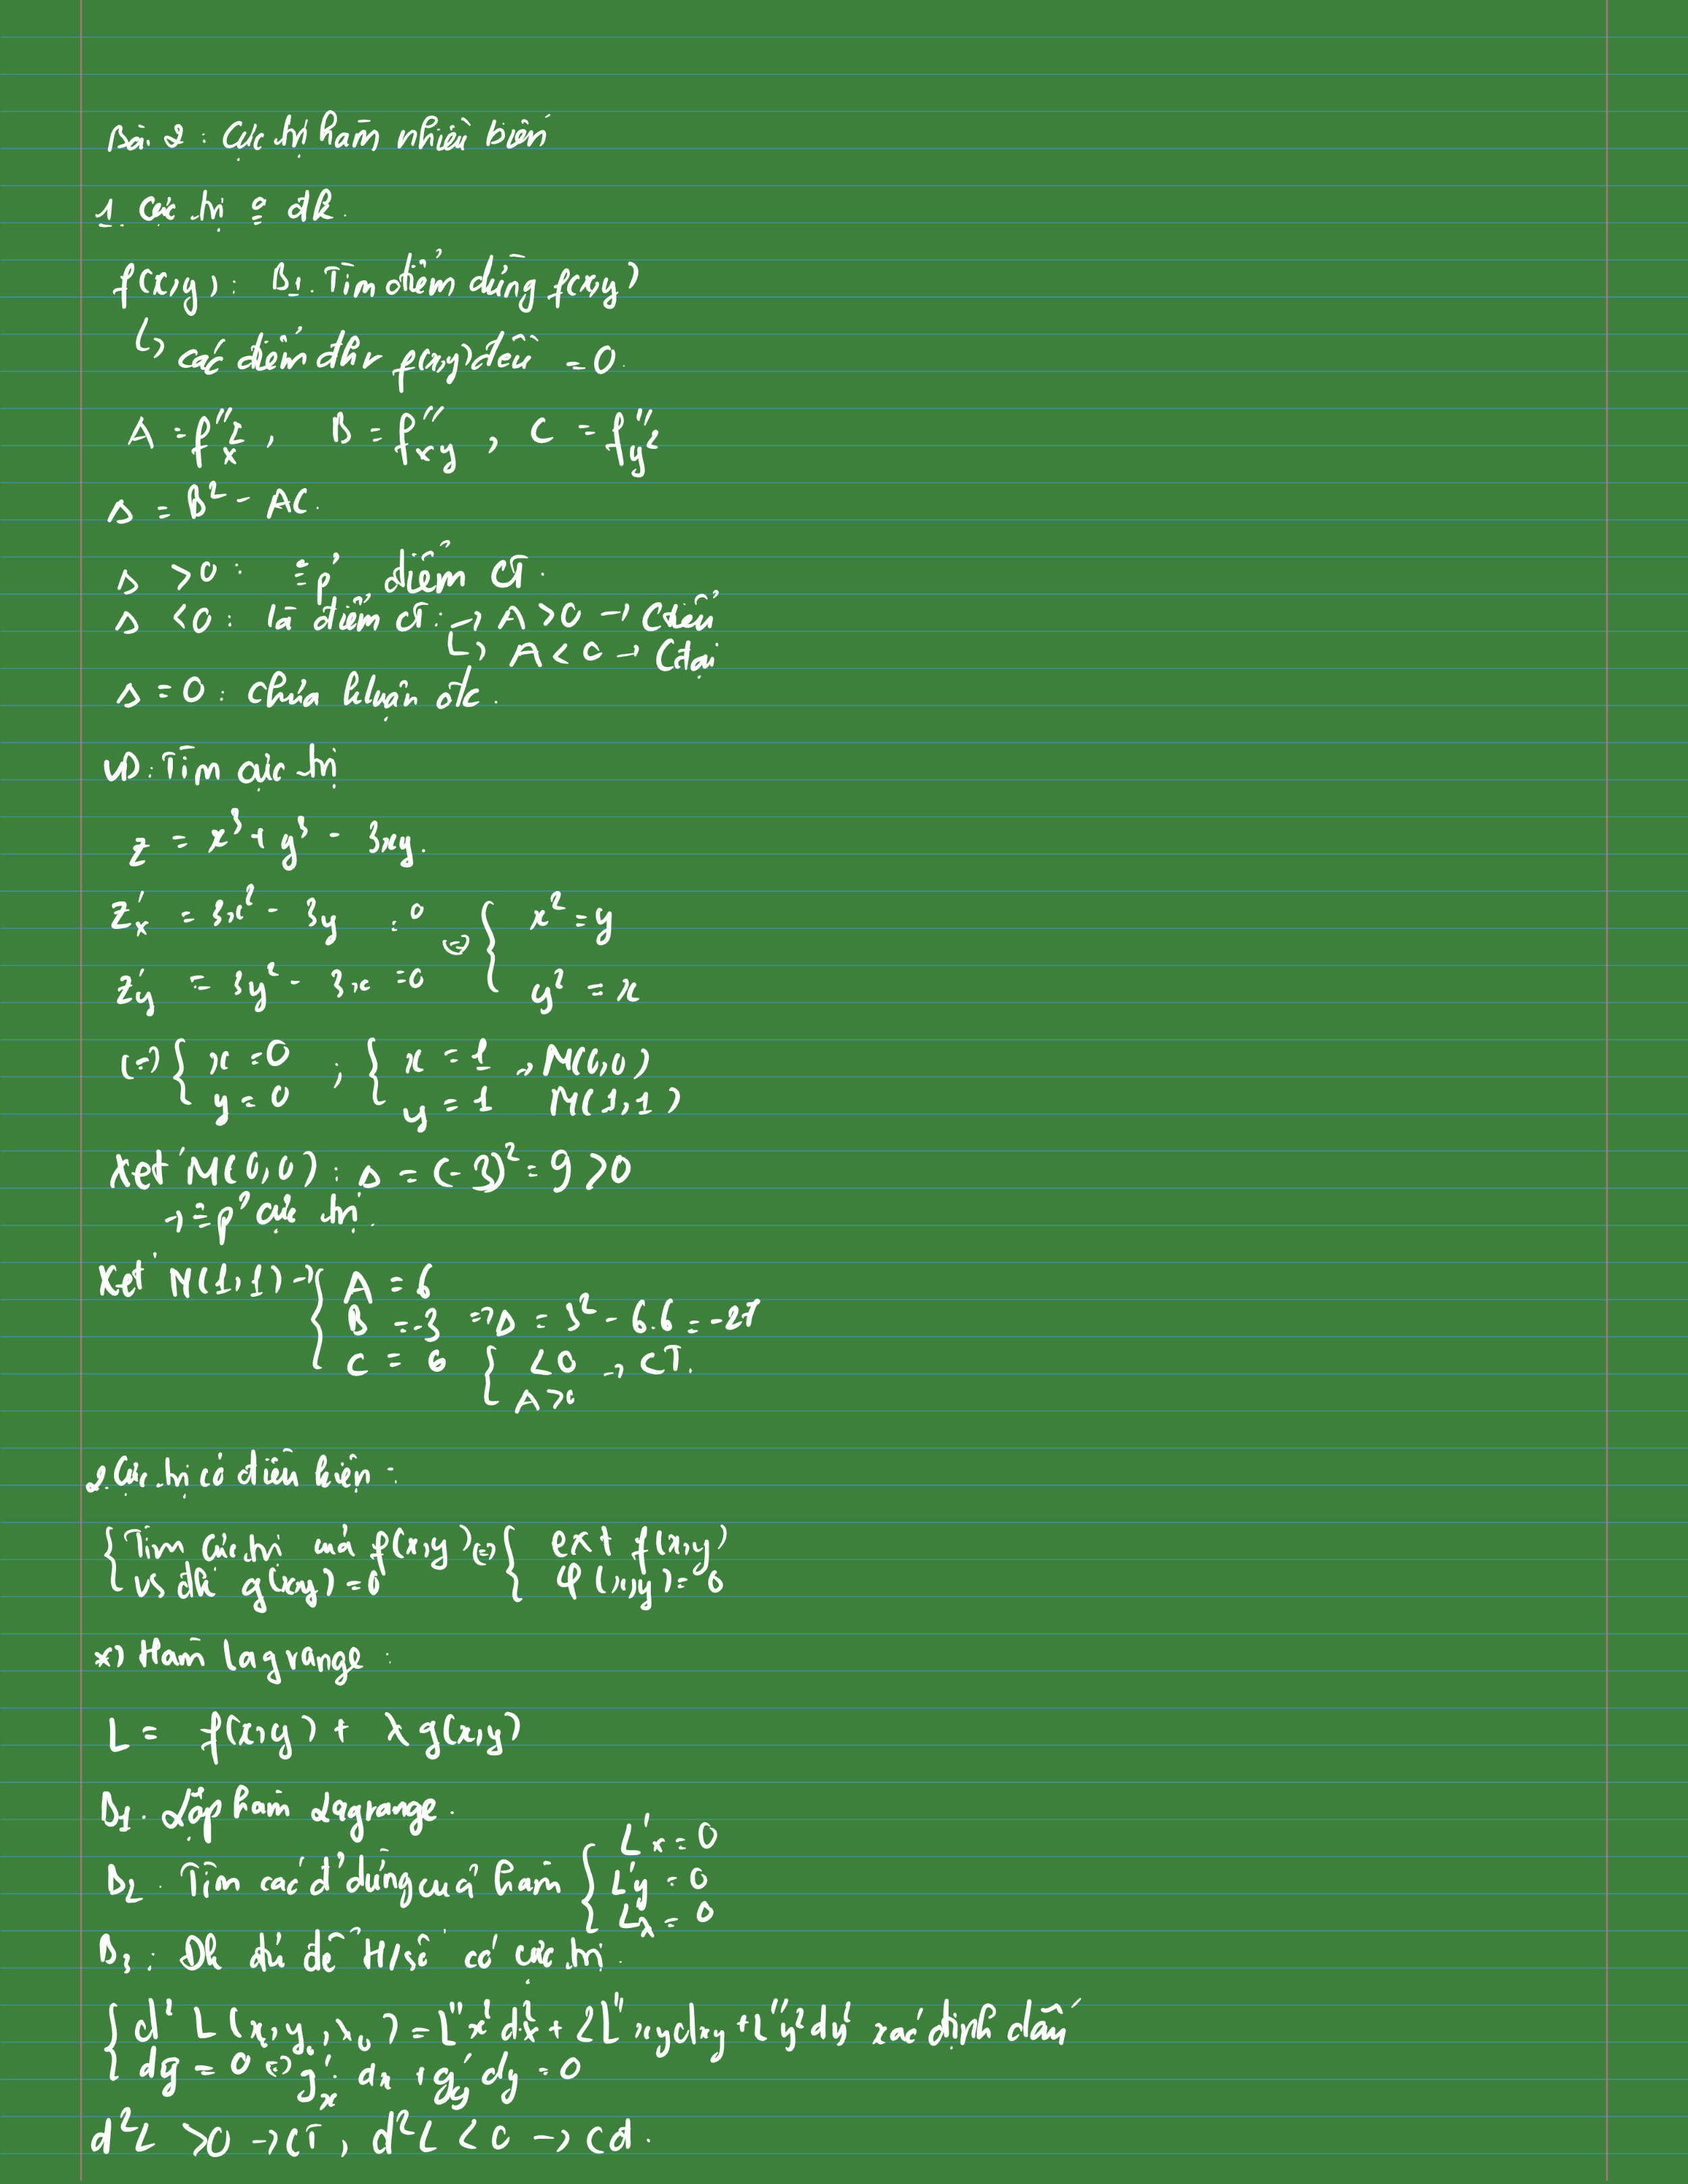 Bài 2: Cực trị hàm nhiều biến
1. Cực trị o đk.
f(x,y): B1. Tìm điểm dừng f(x,y)
↳ các điểm đhr f(x,y) đều = 0.
A = f''x², B = f''xy, C = f''y²
Δ = B² - AC.
Δ > 0: p' điểm CT.
Δ < 0: là điểm CT: → A > 0 → Ctiểu
↳ A < 0 → Cđại
Δ = 0: Chưa kluận đc.
VD: Tìm cực trị
z = x³ + y³ - 3xy.
z'x = 3x² - 3y = 0 ⇔ { x² = y
z'y = 3y² - 3x = 0 { y² = x
(=) { x = 0 ; { x = 1 → M(0,0)
y = 0 y = 1 N(1,1)
Xét M(0,0): Δ = (-3)² = 9 > 0
→ p' cực trị.
Xét N(1,1) → { A = 6
B = -3 => Δ = 3² - 6.6 = -27
C = 6 { < 0 → CT.
A > 0
2. Cực trị có điều kiện:
{ Tìm Cực trị của f(x,y) (=) { ext f(x,y)
vs đk g(x,y) = 0 φ(x,y) = 0
*) Hàm lagrange:
L = f(x,y) + λ g(x,y)
B1. Lập hàm Lagrange.
L'x = 0
B2. Tìm các đ' dừng của hàm { L'y = 0
Lλ = 0
B3: Đk đủ để H/số có cực trị.
{ d² L(x,y,λ0) = L''x² d²x + 2L''xy dxy + L''y² dy² xác định dấu
dg = 0 ⇔ g'x dx + g'y dy = 0
d²L > 0 → CT, d²L < 0 → CĐ.